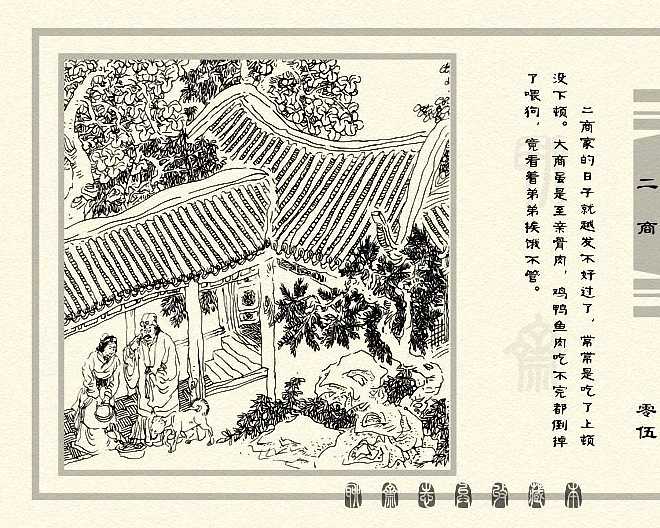 二商家的日子就越发不好过了，常常是吃了上顿
没下顿。大商虽是至亲骨肉，鸡鸭鱼肉吃不完都倒掉
了喂狗，竟看着弟弟挨饿不管。
二商
零伍